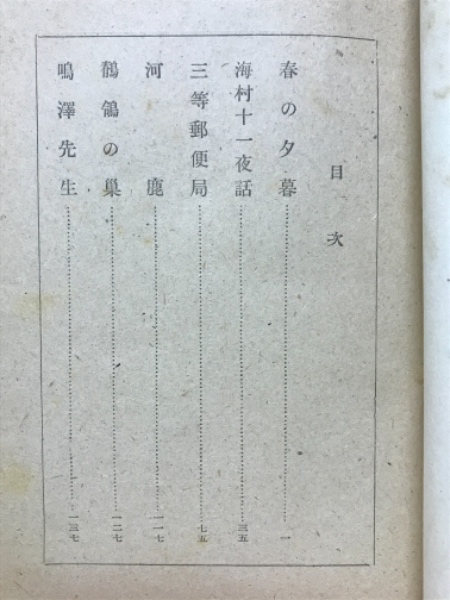 目次
春の夕暮……一
海村十一夜話……三五
三等郵便局……七五
河鹿……一一七
鶺鴒の巣……一二七
鳴澤先生……一三七